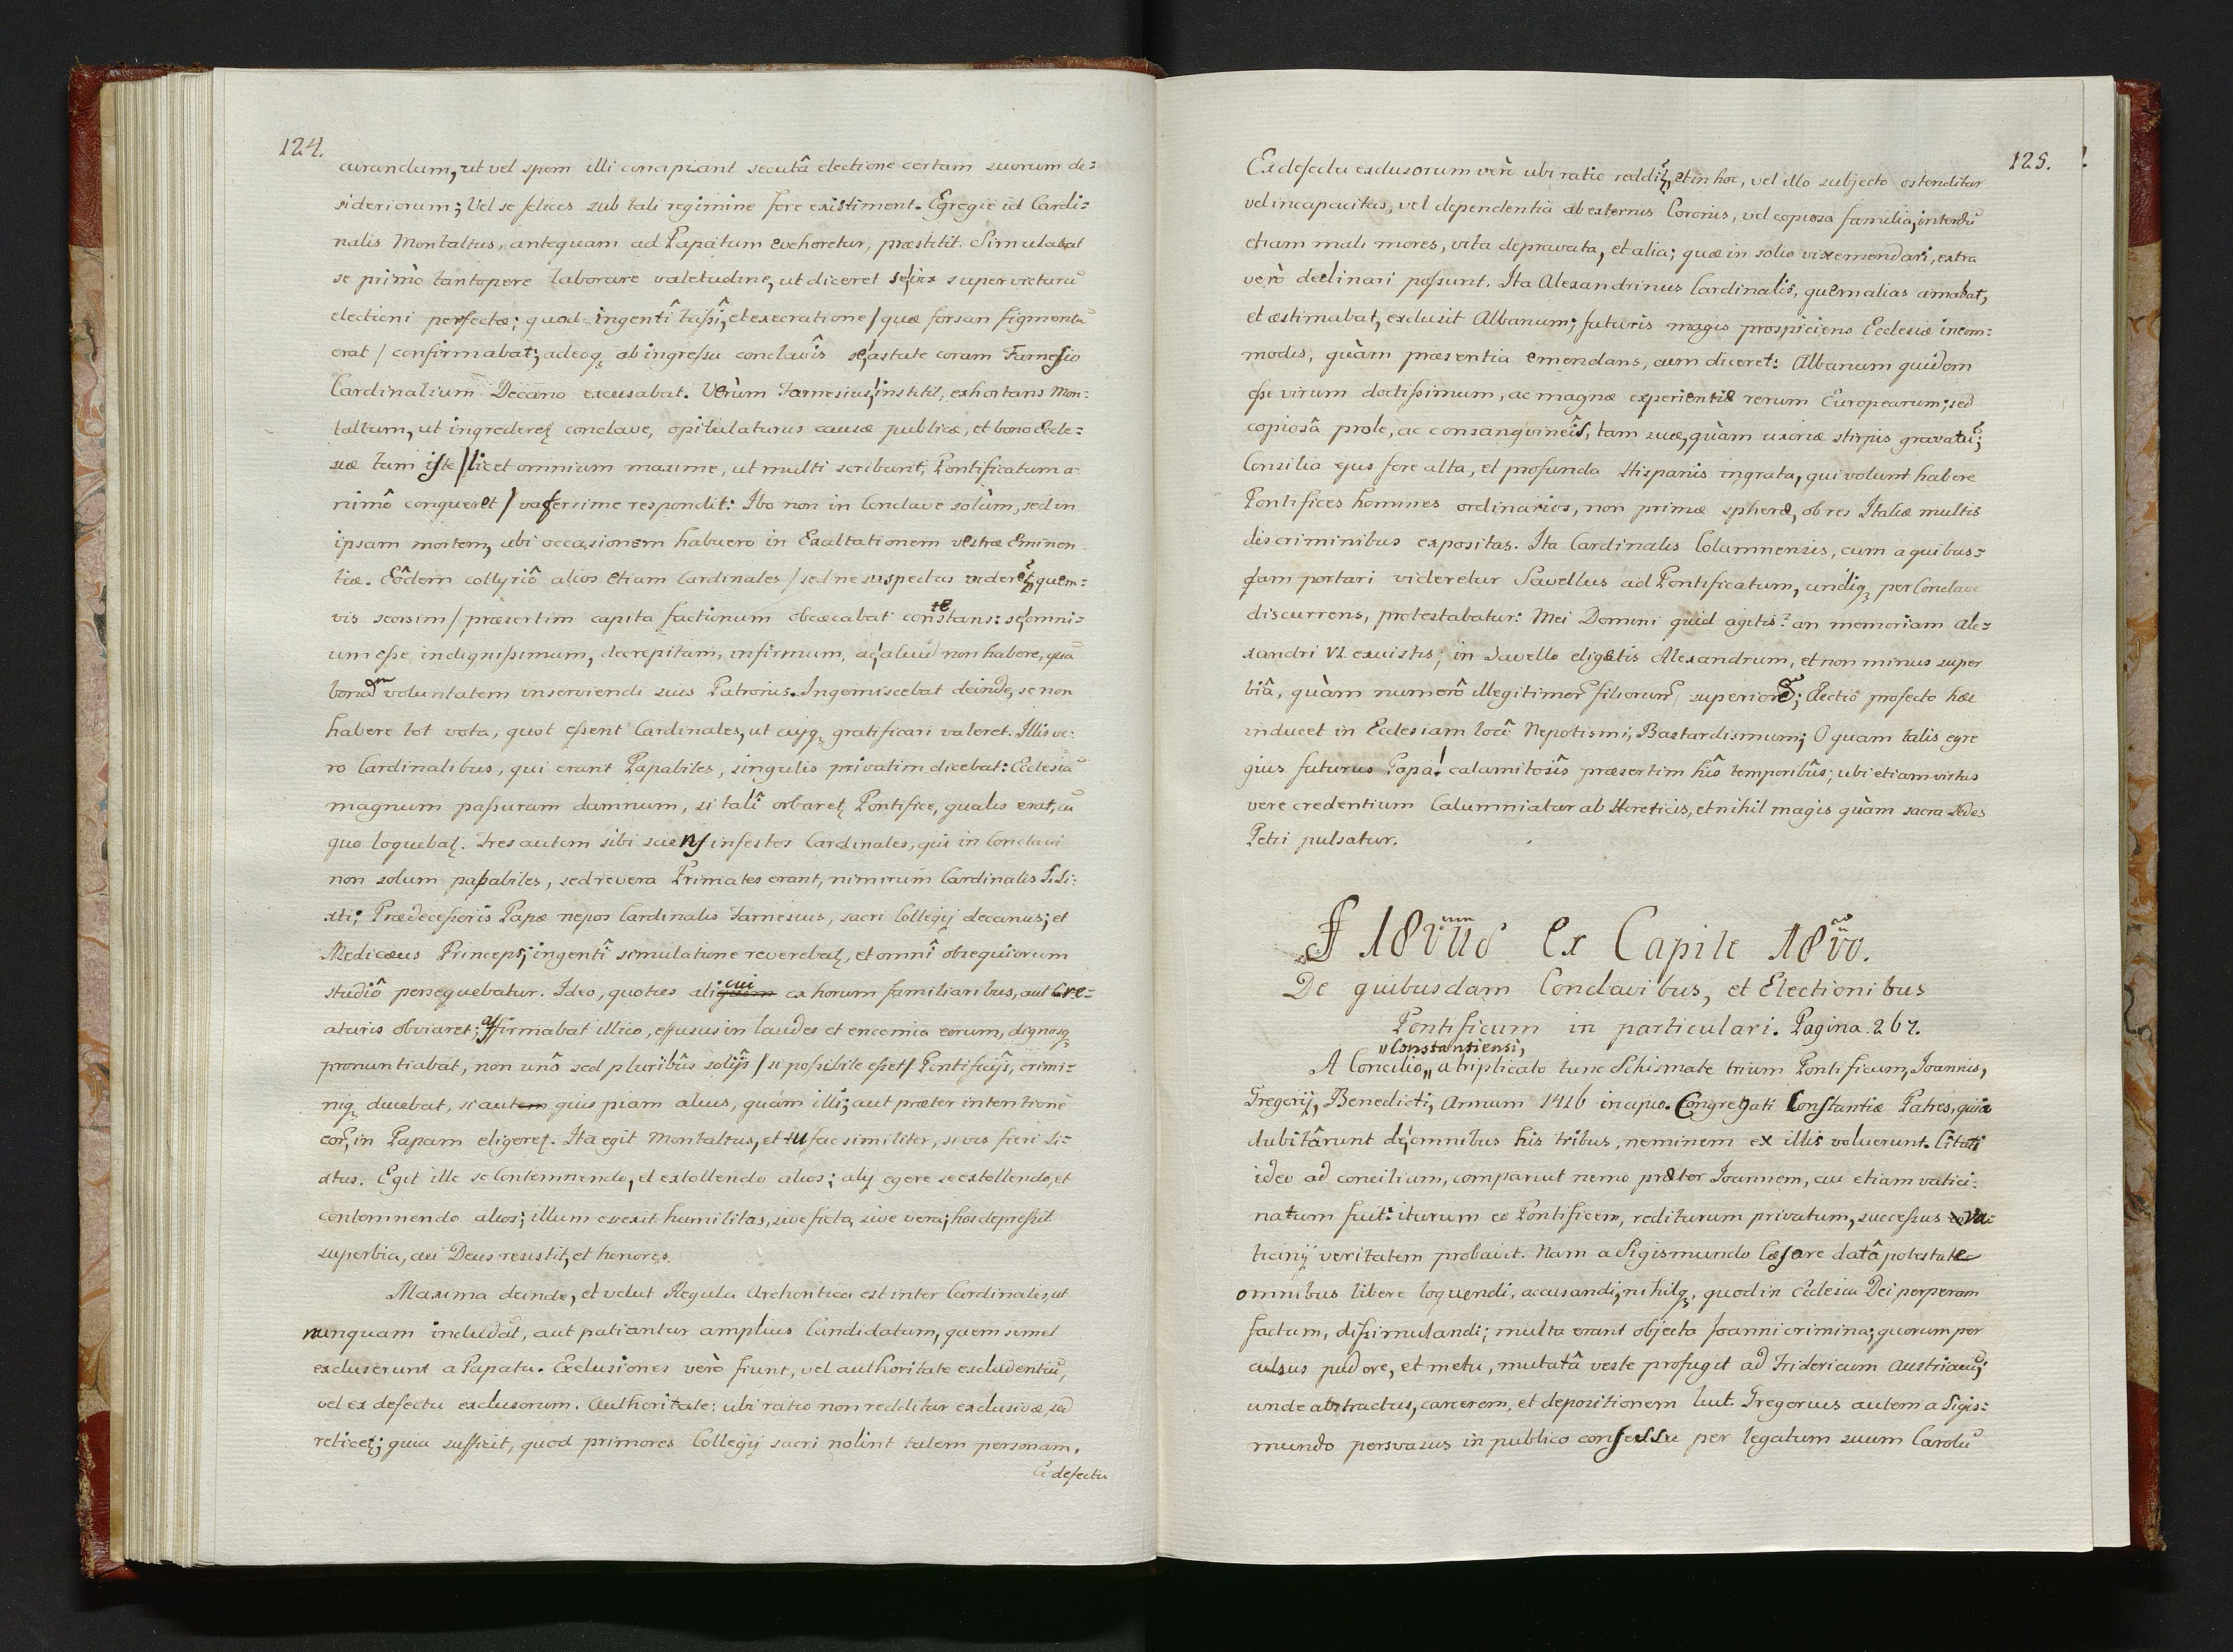 124.
curandum, ut vel spem illi concipiant secutâ electione certam suorum de=
sideriorum; Vel se felices sub tali regimine fore existiment. Egregie id Cardi=
nalis Montaltus, antequam ad Papatum eveheretur, præstitit. Simulabat
se primò tantopere laborare valetudine, ut diceret se, vix supervicturũ
electioni perfectæ; quod ingentî tussî, et execratione / quæ forsan figmentũ
erat / confirmabat; adeoq3 ab ingressu conclavîs se, astute coram Farnesio
Cardinalium Decano excusabat. Verùm Farnesius, institit, exhortans Mon=
taltum, ut ingrederet, conclave, opitulaturus causæ publicæ, et bono Eccle=
siæ tum iste / licet omnium maxime, ut multi scribunt, Pontificatum a=
nimô conqueret / vaferrime respondit: Ibo non in Conclave solùm, sed in
ipsam mortem, ubi occasionem habuero in Exaltationem vestræ Eminen=
tiæ. Eôdem collyriô alios etiam Cardinales / sed ne suspectus videret, quem=
vis seorsim / præsertim capita factionum obcæcabat constans: se, omni=
te
um esse indignissimum, decrepitam, infirmum, ac, aliud non habere, quã
bonam voluntatem inserviendi suis Patronis. Ingemiscebat deinde, se non
habere tot vota, quot essent Cardinales, ut cuiq3 gratificari valeret. Illis ve=
ro Cardinalibus, qui erant Papabiles, singulis privatim dicebat: Ecclesiã
magnum passuram damnum, si talî orbaret, Pontifice, qualis erat, cũ
quo loquebat. Tres autem sibi sciens infestos Cardinales, qui in Conclavi
non solum papabiles, sed revera Primates erant, nimirum Cardinalis S. Si=
xti; Prædecessoris Papæ nepos Cardinalis Farnesius, sacri Collegij decanus; et
Medicæus Princeps; ingentî simulatione reverebat, et omnî obsequiorum
studiô persequebatur. Ideo, quoties aliquem cui ex horum familiaribus, aut Cre=
aturis obviaret; affirmabat illico, effusus in laudes et encomia eorum, dignosq3
pronuntiabat, non unô sed pluribûs solijs / si possibile esset / Pontificijs, crimi=
niq3 ducebat, si autem quispiam alius, quàm illi; aut præter intentionẽ
eor, in Papam eligeret. Ita egit Montaltus, et tu fac similiter, si vis fieri Si=
xtus. Egit ille se Contemnendo, et extollendo alios; alij egere se extollendo, et
contemnendo alios; illum evexit humilitas, sive ficta, sive vera; hos depressit
superbia, cui Deus resistit, et honores.
Maxima deinde, et velut Regula Archontica est inter Cardinales, ut
nunquam includãt, aut patiantur amplius Candidatum, quem semel
excluserunt a Papatu. Exclusiones verò fiunt, vel authoritate excludentiũ,
vel ex defectu exclusorum. Authoritate: ubi ratio non redditur exclusivæ, sed
reticet; quia sufficit, quod primores Collegij sacri nolint talem personam.
Ex defectu
125.
Ex defectu exclusorum verò ubi ratio reddit, et in hoc, vel illo subjecto ostenditur
vel incapacitas, vel dependentia ab externis Coronis, vel copiosa familia; interdũ
etiam mali mores, vita depravata, et alia; quæ in solio vix emendari, extra
verò declinari possunt. Ita Alexandrinus Cardinalis, quem alias amabat,
et æstimabat, exclusit Albanum; futuris magis prospiciens Ecclesiæ incom=
modis, quàm præsentia emendans, cum diceret: Albanum quidem
esse virum doctissimum, ac magnæ experientiæ rerum Europearum; sed
copiosâ prole, ac consanguineîs, tam suæ, quàm uxoriæ stirpis gravatũ;
Consilia ejus fore alta, et profunda Hispanis ingrata, qui volunt habere
Pontifices homines ordinarios, non primæ spheræ, ob res Italiæ multis
discriminibus expositas. Ita Cardinalis Columnensis, cum a quibus=
dam portari videretur Savellus ad Pontificatum, undiq3 per Conclave
discurrens, protestabatur: Mei Domini quid agitis? an memoriam Ale=
xandri VI exuistis; in Savello eligetis Alexandrum, et non minus super
biâ, quàm numerô illegitimor filiorum superiorẽ; Electio profecto hæc
inducet in Ecclesiam locô Nepotismi, Bastardismum; O quam talis egre
gius futurus Papa! calamitosîs præsertim hîs temporibûs; ubi etiam virtus
vere credentium Calumniatur ab Hereticis, et nihil magis quàm sacra Sedes
Petri pulsatur.
§ 18vus ex Capite 18vo.
De quibusdam Conclavibus, et Electionibus
Pontificum in particulari. Pagina. 267.
"Constansiensi,
A Concilio " a triplicato tunc Schismate trium Pontificum, Joannis,
Gregorij, Benedicti, Annum 1416 incipio. Congregati Constantiæ Patres, quia
dubitârunt de, omnibus his tribus, neminem ex illis voluerunt. Citati
ideo ad concilium, comparuit nemo præter Joannem, cui etiam vatici=
natum fuit: iturum eo Pontificem, rediturum privatum, successus va=
ticinij veritatem probavit. Nam a Sigismundo Cæsare datâ potestate
omnibus libere loquendi, accusandi, nihilq3, quod in Ecclesia Dei perperam
factum, dissimulandi; multa erant objecta Joanni crimina; quorum per
culsus pudore, et metu, mutatâ veste profugit ad Fridericum Austriacũ;
unde abstractus, carcerem, et depositionem luit. Gregorius autem a Sigis=
mundo persvasus in publico consessu per legatum suum Carolũ